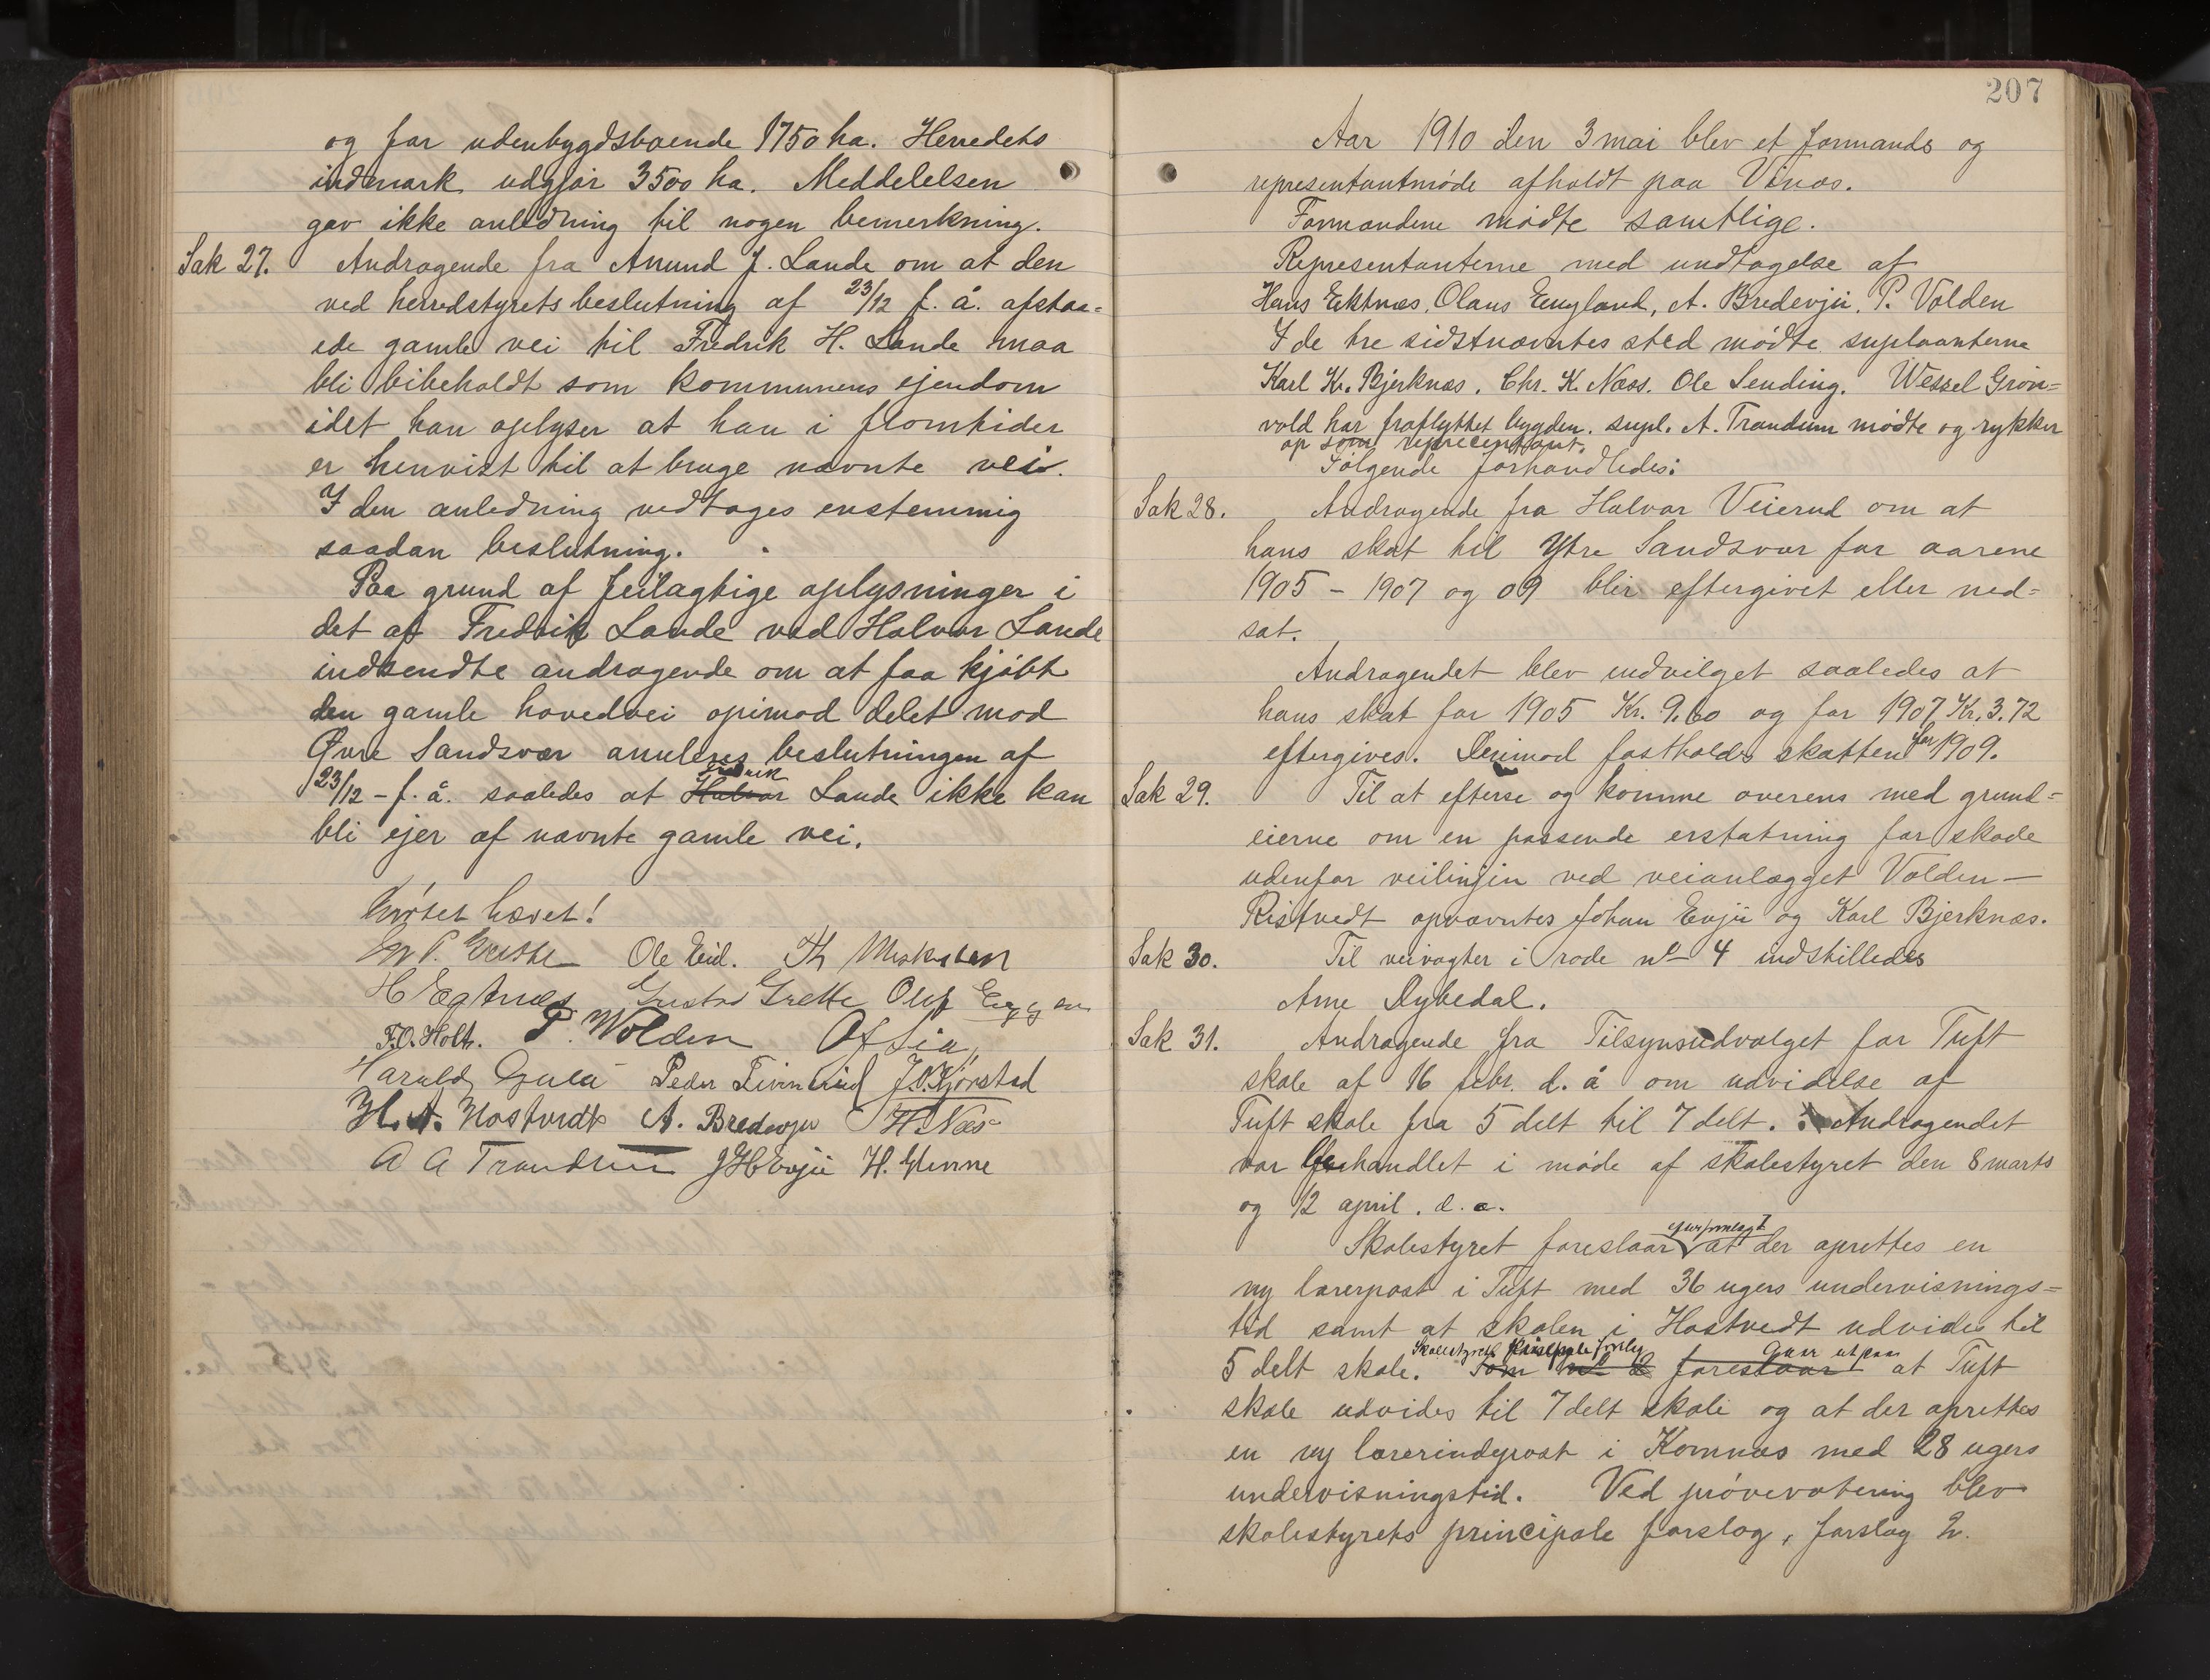 og for udenbygdsboende 1750 ha. Herredets
indmark udgjør 3500 ha. Meddelelsen
gav ikke anledning til nogen bemerkning.
Sak 27. Andragende fra Anund J. Lande om at den
ved herredstyrets beslutning af 23/12 f. å. afstaa=
ede gamle vei til Fredrik H. Lande maa
bli bibeholdt som kommunens ejendom
idet han oplyser at han i fromtider
er henvist til at bruge nævnte vei.
I den anledning vedtages enstemmig
saadan beslutning.
Paa grund af feilagtige oplysninger i
det af Fredrik Lande ved Halvor Lande
indsendte andragende om at faa kjøbt
den gamle hovedvei opimod delet mod
Øvre Sandsvær anuleres beslutningen af
Fredrik
23/12 - f. å. saaledes at Halvor Lande ikke kan
bli ejer af nævnte gamle vei.
Møtet hævet!
Ole Eid. Th Moskvten
H Egtnæs Gustav Grette Oluf
T.O. Holt. P. Wolden O F Lia,
Harald Gula Peder Tivinrud J.O. Kjørstad
H. A. Hostvedt A. Bredevjen H Næs
A A Trandum J H Evju H. Glenne
207
Aar 1910 den 3 mai blev et formands og
representantmøde afholdt paa Vinæs.
Formændene mødte samtlige.
Representanterne med undtagelse af
Hans Ektnæs, Olaus Eugland, A. Bredevju, P. Volden
I de tre sidstnævntes sted mødte suplaanterne
Karl Kr. Bjerknæs. Chr. K. Næss. Ole Sending. Wessel Grøn=
vold har fraflyttet bygden. supl. A. Trandum mødte og rykker
op som reprecentant.
Følgende forhandledes:
Sak 28. Andragende fra Halvor Veierud om at
hans skat til Ytre Sandsvær for aarene
1905 - 1907 og 09 blir eftergivet eller ned=
sat.
Andragendet blev indvilget saaledes at
hans skat for 1905 Kr. 9.60 og for 1907 Kr. 3.72
eftergives. Derimod fastholdes skatten for 1909.
Sak 29. Til at efterse og komme overens med grund=
eierne om en passende erstatning for skade
udenfor veilinjin ved veianlægget Volden—
Ristvedt opnævntes Johan Evju og Karl Bjerknæs.
Sak 30. Til veivogter i rode no 4 indstilledes
Arne Dybedal.
Sak 31. Andragende fra Tilsynsudvalget for Tuft
skole af 16 febr. d. å om udvidelse af
Tuft skole fra 5 delt til 7 delt. Andragendet
var behandlet i møde af skolestyret den 8 marts
og 12 april. d. a.
Skolestyret foreslaar at der oprettes en
ny lærerpost i Tuft med 36 ugers undervisnings=
tid samt at skolen i Hostvedt udvides til
Skolestyrets prinsipale forslag gaar ut paa
5 delt skole. Som no 2 foreslaar at Tuft
skole udvides til 7 delt skole og at der oprettes
en ny lærerindepost i Komnæs med 28 ugers
undervisningstid. Ved prøvevotering blev
skolestyrets principale forslag, forslag 2.